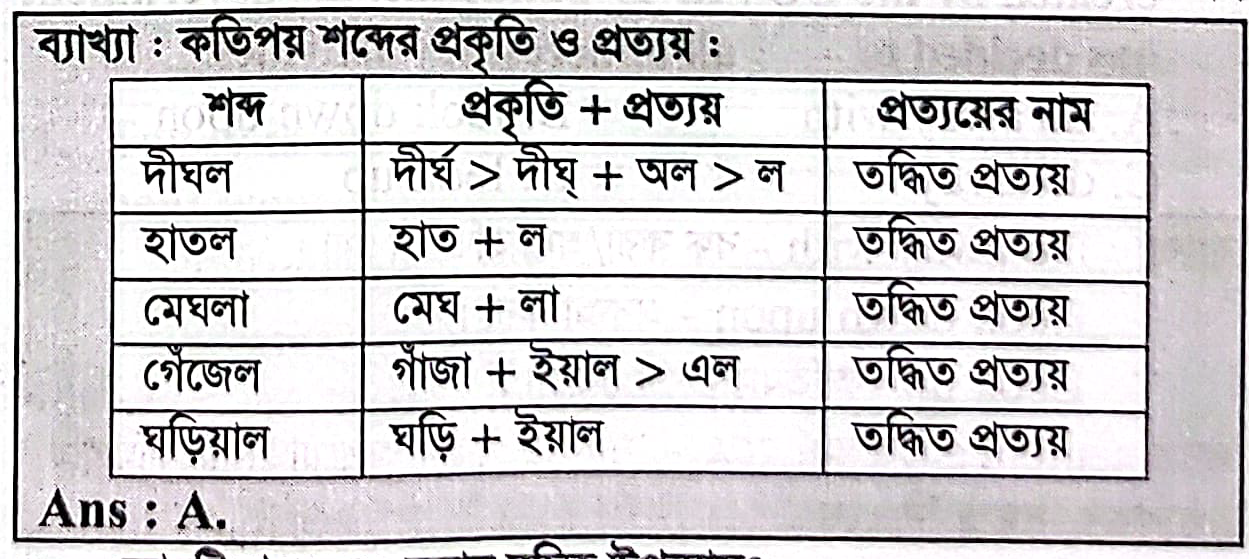 ব্যাখ্যা : কতিপয় শব্দের প্রকৃতি ও প্রত্যয় :
শব্দ প্রকৃতি + প্রত্যয় প্রত্যয়ের নাম
দীঘল দীর্ঘ > দীঘ্ + অল > ল তদ্ধিত প্রত্যয়
হাতল হাত + ল তদ্ধিত প্রত্যয়
মেঘলা মেঘ + লা তদ্ধিত প্রত্যয়
গেঁজেল গাঁজা + ইয়াল > এল তদ্ধিত প্রত্যয়
ঘড়িয়াল ঘড়ি + ইয়াল তদ্ধিত প্রত্যয়
Ans : A.